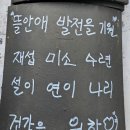 뜰안애 발전을 기원
재섭 미소 수련
설이 연이 나리